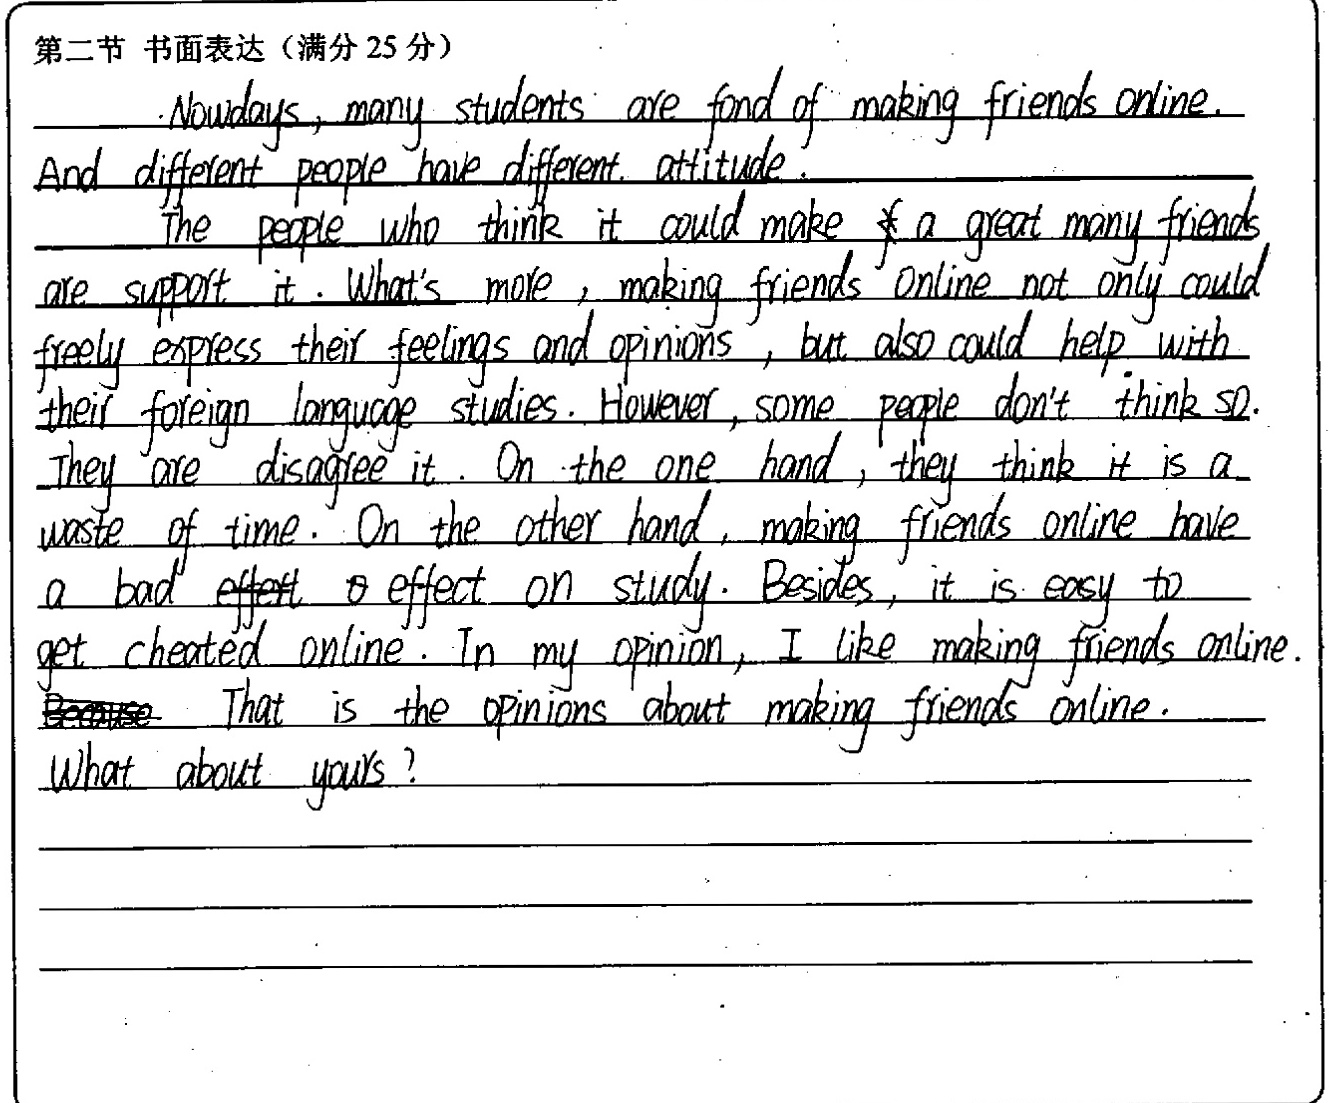 第二节 书面表达（满分 25 分）
Nowdays, many students are fond of making friends online.
And different people have different attitude.
The people who think it could make a great many friends
are support it. What's more, making friends online not only could
freely express their feelings and opinions, but also could help with
their foreign language studies. However, some people don't think so.
They are disagree it. On the one hand, they think it is a
waste of time. On the other hand, making friends online have
a bad effect on study. Besides, it is easy to
get cheated online. In my opinion, I like making friends online.
Because That is the opinions about making friends online.
What about yours?